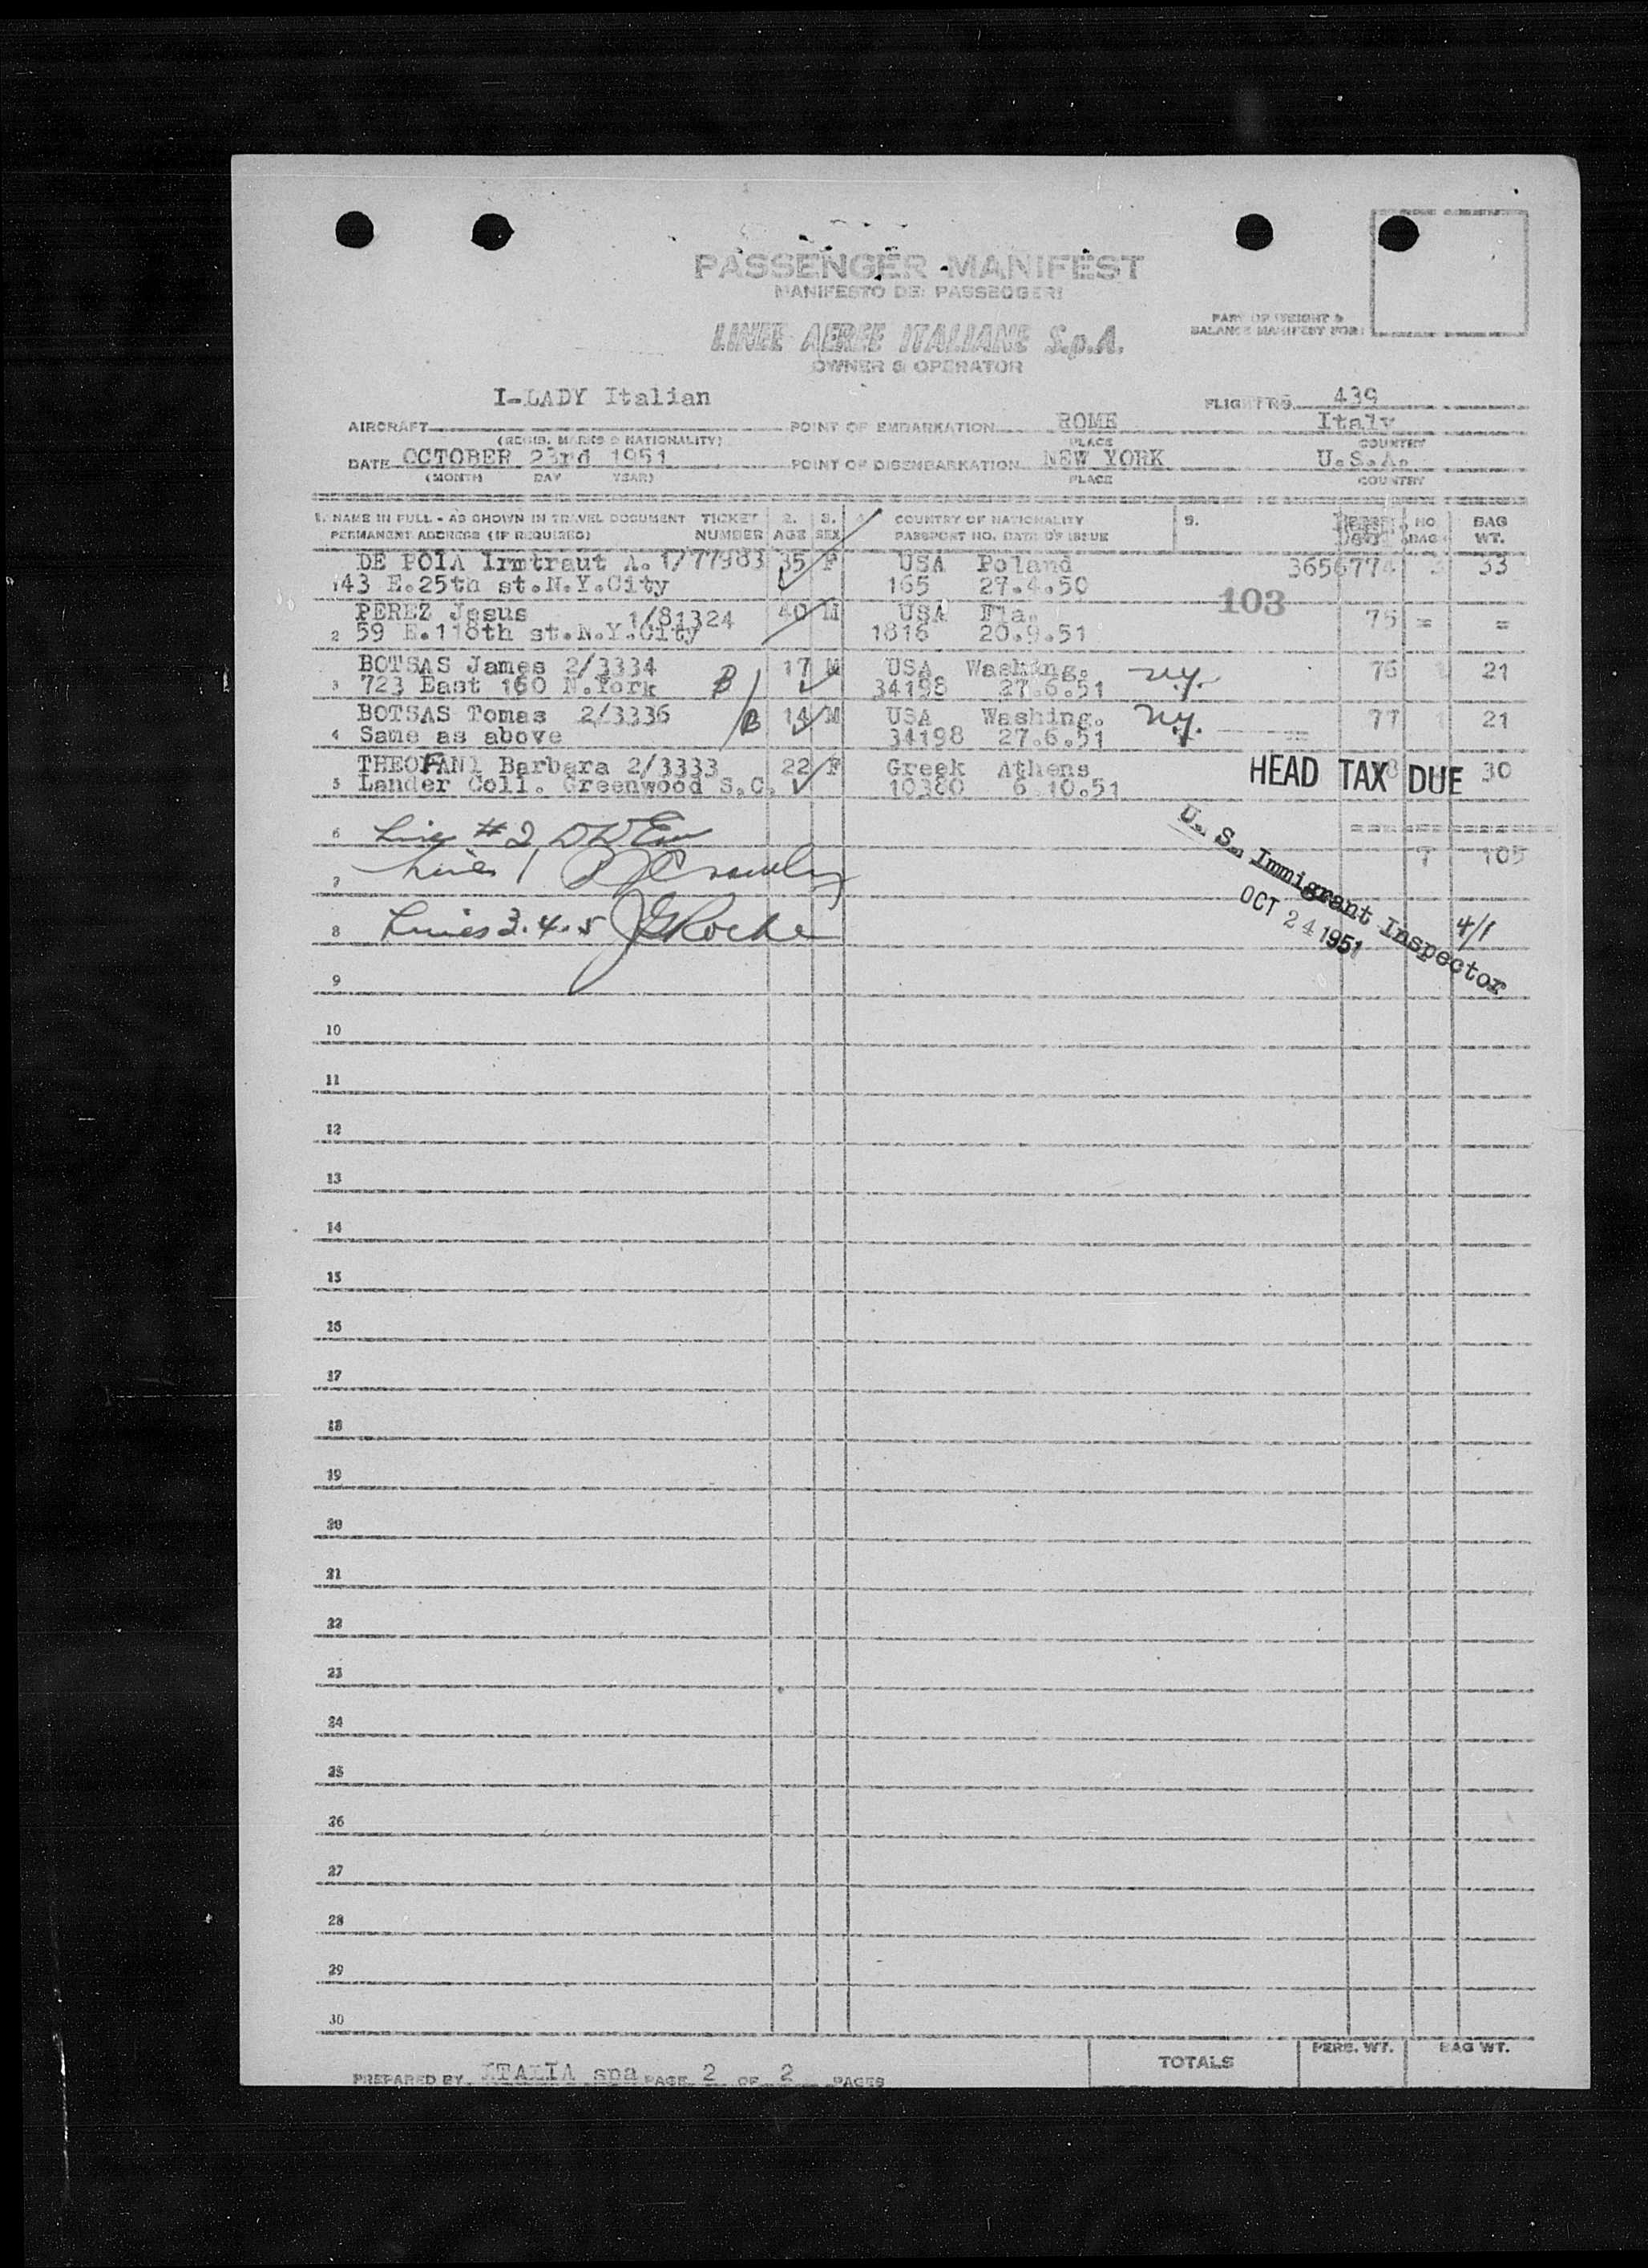 PASSENGER MANIFEST
MANIFESTO DEI PASSEGGERI
LINEE AEREE ITALIANE S.p.A.
OWNER & OPERATOR
PART OF WEIGHT &
BALANCE MANIFEST FOR:
I-LADY Italian
FLIGHT No. 439
AIRCRAFT POINT OF EMBARKATION ROME Italy
(REGIS. MARKS & NATIONALITY) PLACE COUNTRY
DATE OCTOBER 23rd 1951 POINT OF DISEMBARKATION NEW YORK U.S.A.
(MONTH DAY YEAR) PLACE COUNTRY
1. NAME IN FULL - AS SHOWN IN TRAVEL DOCUMENT TICKET 2. 3. 4. COUNTRY OF NATIONALITY 5. NO. BAG
PERMANENT ADDRESS (IF REQUIRED) NUMBER AGE SEX PASSPORT NO. DATE OF ISSUE BAG WT.
DE POIA Irmtraut A. 1/77983 35 F USA Poland 3656774 33
143 E.25th st.N.Y.City 165 27.4.50
PEREZ Jesus 1/81324 40 M USA Fla. 103 75 = =
2 59 E.118th st.N.Y.City 1816 20.9.51
BOTSAS James 2/3334 B 17 M USA Washing. N.Y. 76 21
3 723 East 160 N.York 34198 27.6.51
BOTSAS Tomas 2/3336 B 14 M USA Washing. N.Y. 77 1 21
4 Same as above 34198 27.6.51
THEOFANI Barbara 2/3333 22 F Greek Athens 30
HEAD TAX DUE
5 Lander Coll. Greenwood S.C. 10380 6.10.51
6 Line #2
7 105
7 Line 1
8 Lines 3.4.5 JGRoche
U. S. Immigrant Inspector
OCT 24 1951
4/1
9
10
11
12
13
14
15
16
17
18
19
20
21
22
23
24
25
26
27
28
29
30
PERS. WT. BAG WT.
TOTALS
PREPARED BY ITALIA spa PAGE 2 OF 2 PAGES